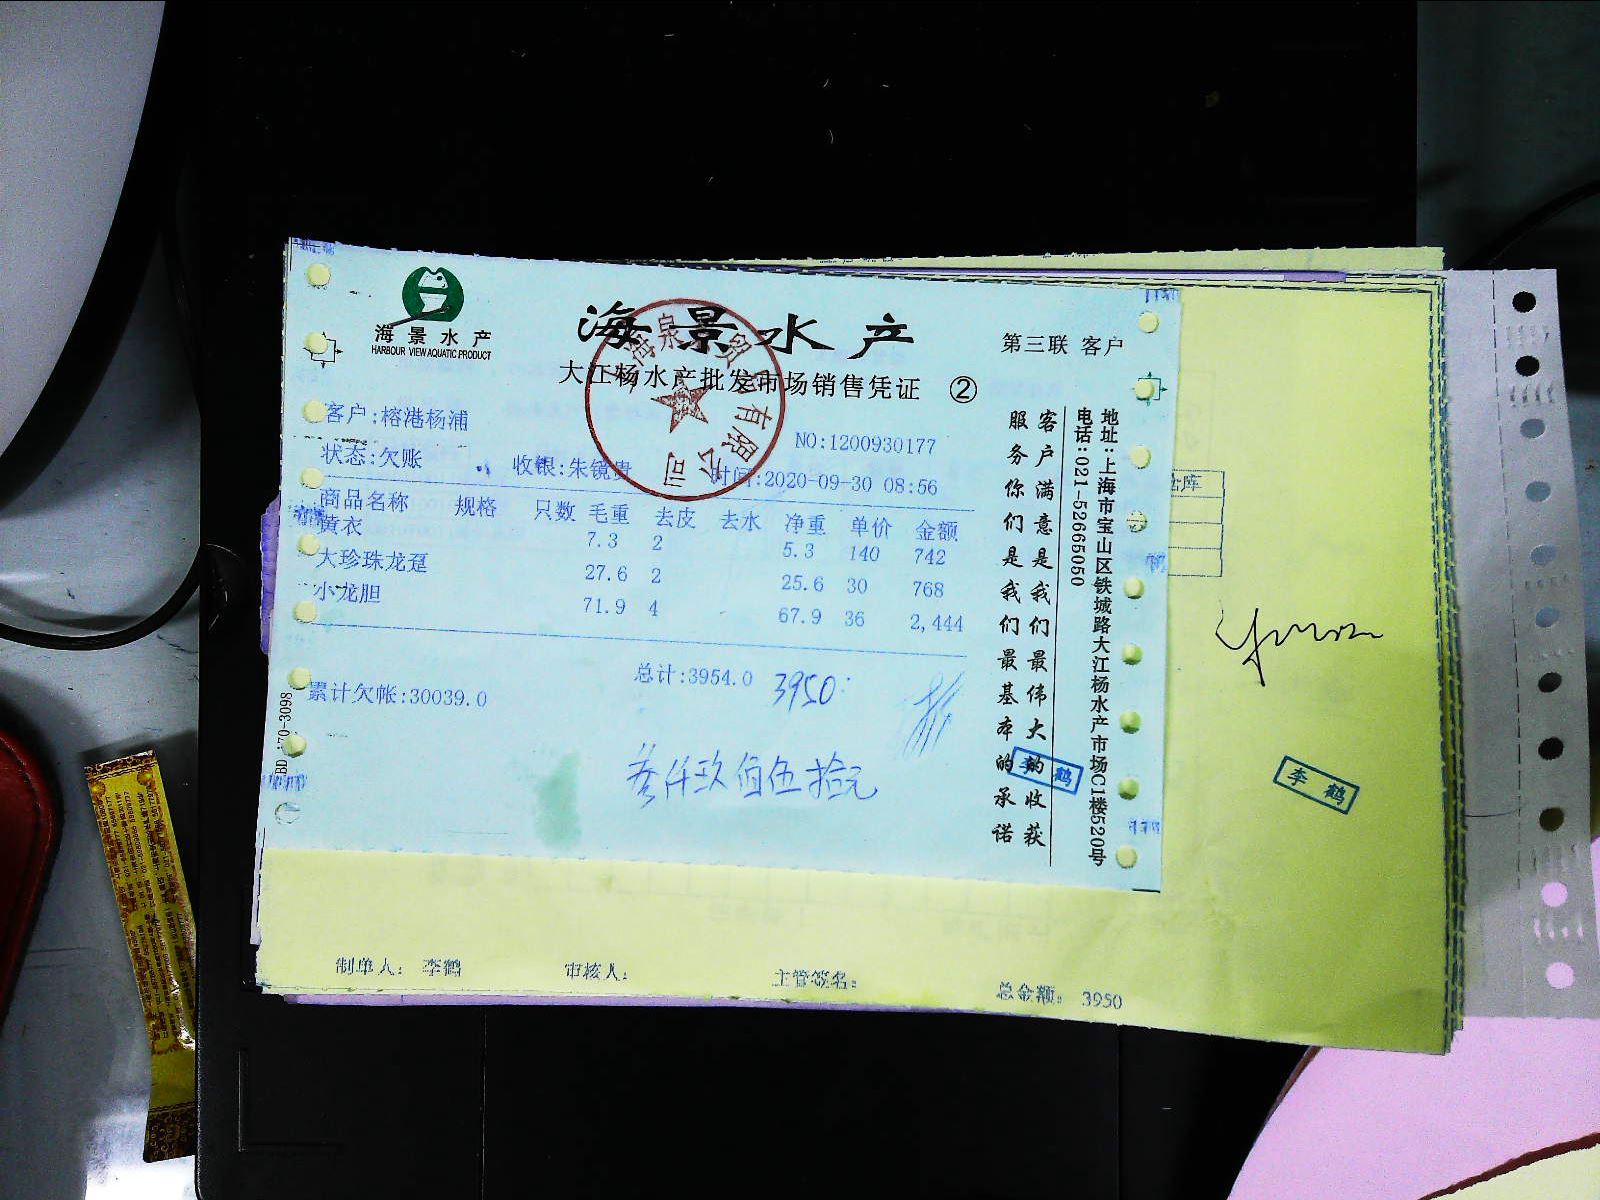 海景水产
HARBOUR VIEW AQUATIC PRODUCT
海景水产
第三联 客户
大江杨水产批发市场销售凭证 ②
客户:榕港杨浦
NO:1200930177
状态:欠账 收银:朱镜贵 时间:2020-09-30 08:56
商品名称 规格 只数 毛重 去皮 去水 净重 单价 金额
黄衣 7.3 2 5.3 140 742
大珍珠龙趸 27.6 2 25.6 30 768
小龙胆 71.9 4 67.9 36 2,444
总计:3954.0 3950
累计欠帐:30039.0
叁仟玖佰伍拾元
客户满意是我们最伟大的收获
服务你们是我们最基本的承诺
地址:上海市宝山区铁城路大江杨水产市场C1楼520号
电话:021-52665050
70-3098
海泉 贸 有限公司
李鹤
仓库
李鹤
制单人: 李鹤 审核人: 主管签名: 总金额: 3950